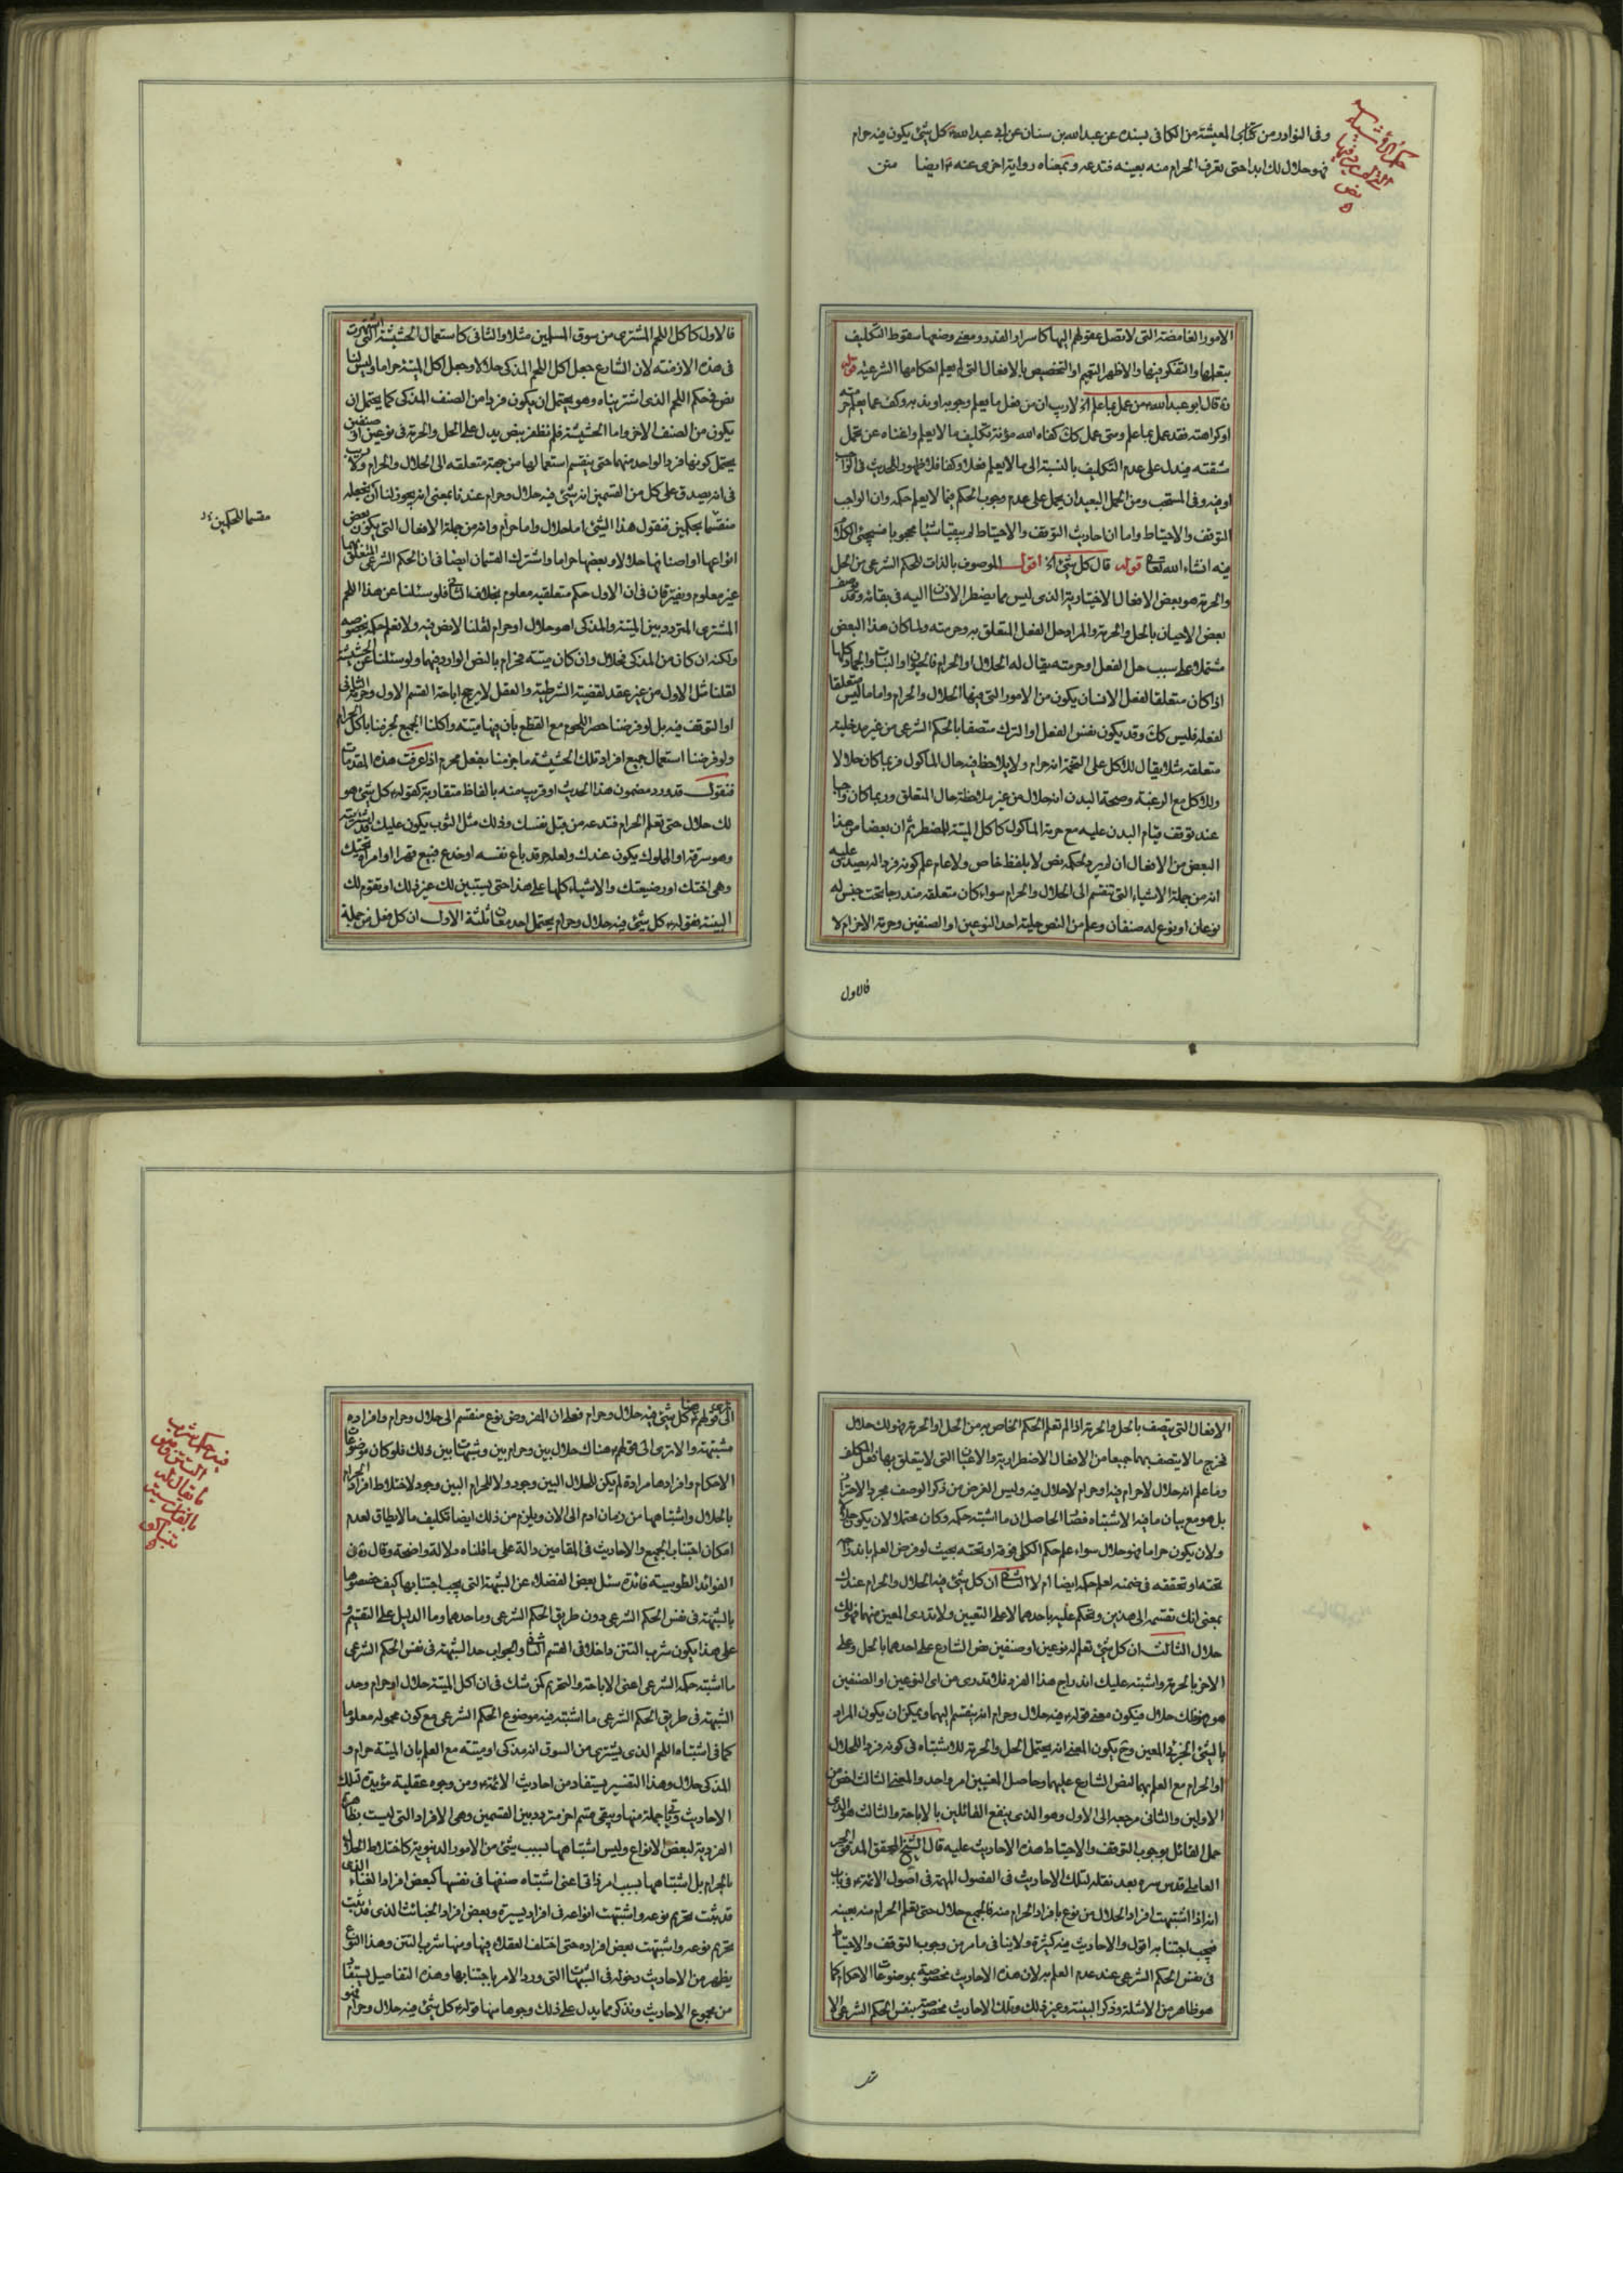 وفى النوادر من كتاب المعيشة من الكافى بسنده عن عبدالله بن سنان عن ابى عبدالله كل شئ يكون فيه حرام
فهو حلال لك ابدا حتى تعرف الحرام منه بعينه فتدعه وبمعناه رواية اخرى عنه ايضا متن
الامور الغامضة التى لا تصل عقولهم اليها كاسرار القدر ومعنى وضعها سقوط التكليف
بتعلمها والتفكر فيها والاظهر التعميم او التخصيص بالافعال التى لم يعلم احكامها الشرعية قوله
قال ابو عبدالله من عمل بما علم لا ريب ان من فعل ما يعلم وجوبه او ندبه وكف عما يعلم حرمته
او كراهته فقد عمل بما علم ومتى عمل كك كفاه الله مؤنة تكليف ما لا يعلم واغناه عن تحمل
مشقته فيدل على عدم التكليف بالنسبة الى ما لا يعلم فعلا وكفا فلا ظهور للحديث فى الواجب
او فيه وفى المستحب ومن المحل البعيد ان يحمل على عدم وجوب الحكم فيما لا يعلم حكمه وان الواجب
التوقف والاحتياط واما ان احاديث التوقف والاحتياط لم يبقيا شيئا محجوبا فسيجئ الكلام
فيه انشاء الله تعالى قوله قال كل شئ اقول الموصوف بالذات للحكم الشرعى من الحل
والحرمة هو بعض الافعال الاختيارية الذى ليس مما يضطر الانسان اليه فى بقائه وقد يوصف
بعض الاعيان بالحل والحرمة والمراد حل الفعل المتعلق به وحرمته ولما كان هذا البعض
مشتملا على سبب حل الفعل او حرمته يقال له الحلال او الحرام فالحيوان او النبات والجماد كلها
اذا كان متعلقا لفعل الانسان يكون من الامور التى فيها الحلال والحرام واما ما ليس متعلقا
لفعله فليس كك وقد يكون نفس الفعل او الترك متصفا بالحكم الشرعى من غير مدخلية
متعلقه مثلا يقال للاكل على التخمة انه حرام ولا يلاحظ فيه حال المأكول فربما كان حلالا
وللاكل مع الرغبة وصحة البدن انه حلال من غير ملاحظة حال المتعلق وربما كان واجبا
عند توقف قيام البدن عليه مع حرمة المأكول كاكل الميتة للمضطر ثم ان بعضا من هذا
البعض من الافعال ان لم يرد بحكمه نص لا بلفظ خاص ولا عام علم كونه فردا له يصدق عليه
انه من جملة الاشياء التى تنقسم الى الحلال والحرام سواء كان متعلقه مندرجا تحت جنس له
نوعان او نوع له صنفان وعلم من النص حلية احد النوعين او الصنفين وحرمة الاخر ام لا
فالاول
فالاول كاكل اللحم المشترى من سوق المسلمين مثلا والثانى كاستعمال الحشيشة التى اشتهرت
فى هذه الازمنة لان الشارع جعل اكل اللحم المذكى حلالا وجعل اكل الميتة حراما وليس لنا
نص فى حكم اللحم الذى اشتريناه وهو يحتمل ان يكون فردا من الصنف المذكى كما يحتمل ان
يكون من الصنف الاخر واما الحشيشة فلم نظفر بنص يدل على الحل والحرمة فى نوعين او صنفين
يحتمل كونها فردا لواحد منهما حتى ينقسم استعمالها من جهة متعلقه الى الحلال والحرام ولا ريب
فى انه يصدق على كل من القسمين انه شئ فيه حلال وحرام عندنا بمعنى انه يجوز لنا ان نجعله
منقسما بحكمين فنقول هذا الشئ اما حلال واما حرام وانه من جملة الافعال التى يكون بعض
انواعها او اصنافها حلالا وبعضها حراما واشترك القسمان ايضا فى ان الحكم الشرعى المتعلق بهما
غير معلوم ويفترقان فى ان الاول حكم متعلقيه معلوم بخلاف الثانى فلو سئلنا عن هذا اللحم
المشترى المتردد بين الميتة والمذكى اهو حلال او حرام لقلنا لا نص فيه ولا نعلم حكمه بخصوصه
ولكنه ان كان من المذكى فحلال وان كان ميتة فحرام بالنص الوارد فيهما ولو سئلنا عن الحشيشة
لقلنا مثل الاول من غير عقد لقضية الشرطية والعقل لا يرجح اباحة القسم الاول وحرمة الثانى
او التوقف فيه بل لو فرضنا حصر اللحوم مع القطع بان فيها ميتة واكلنا الجميع لجزمنا باكل الحرام
ولو فرضنا استعمال جميع افراد تلك الحشيشة ما جزمنا بفعل محرم اذا عرفت هذه المقدمات
فنقول قد ورد مضمون هذا الحديث او قريب منه بالفاظ متقاربة كقوله كل شئ هو
لك حلال حتى تعلم الحرام فتدعه من قبل نفسك وذلك مثل الثوب يكون عليك قد اشتريته
وهو سرقة او المملوك يكون عندك ولعله حر قد باع نفسه او خدع فبيع قهرا او امرأة تحتك
وهى اختك او رضيعتك والاشياء كلها على هذا حتى يستبين لك غير ذلك او تقوم لك
البينة فقوله كل شئ فيه حلال وحرام يحتمل احد معان ثلثة الاول ان كل فعل من جملة
مقسما للحكمين
الافعال التى يتصف بالحل والحرمة اذا لم تعلم الحكم الخاص به من الحل والحرمة فهو لك حلال
فخرج ما لا يتصف بهما جميعا من الافعال الاضطرارية والاعيان التى لا يتعلق بها فعل المكلف
وما علم انه حلال لا حرام فيه او حرام لا حلال فيه وليس الغرض من ذكر الوصف مجرد الاحتراز
بل هو مع بيان ما فيه الاشتباه فصار الحاصل ان ما اشتبه حكمه وكان محتملا لان يكون حلالا
ولان يكون حراما فهو حلال سواء علم حكم الكلى فوقه او تحته بحيث لو فرض العلم باندراجه
تحته او تحققه فى ضمنه لعلم حكمه ايضا ام لا الثانى ان كل شئ فيه الحلال والحرام عندك
بمعنى انك تقسمه الى هذين وتحكم عليه باحدهما لا على التعيين ولا تدرى المعين منهما فهو لك
حلال الثالث ان كل شئ تعلم له نوعين او صنفين نص الشارع على احدهما بالحل وعلى
الاخر بالحرمة واشتبه عليك اندراج هذا الفرد فلا تدرى من اى النوعين او الصنفين
هو فهو لك حلال فيكون معنى قوله فيه حلال وحرام انه ينقسم اليهما ويمكن ان يكون المراد
بالشئ الجزئى المعين وح يكون المعنى انه يحتمل الحل والحرمة للاشتباه فى كونه فردا للحلال
او الحرام مع العلم بهما لنص الشارع عليهما وحاصل المعنيين امر واحد والمعنى الثالث اخص من
الاولين والثانى مرجعه الى الاول وهو الذى ينفع القائلين بالاباحة والثالث هو الذى
حمل القائل بوجوب التوقف والاحتياط هذه الاحاديث عليه قال الشيخ المحقق المدقق الحر
العاملى قدس سره بعد نقله لتلك الاحاديث فى الفصول المهمة فى اصول الائمة فى باب
انه اذا اشتبهت افراد الحلال من نوع بافراد الحرام منه فالجميع حلال حتى تعلم الحرام منه بعينه
فيجب اجتنابه اقول والاحاديث فيه كثيرة ولا ينافى ما مر من وجوب التوقف والاحتياط
فى نفس الحكم الشرعى عند عدم العلم به لان هذه الاحاديث مخصوصة بموضوعات الاحكام كما
هو ظاهر من الاسئلة وذكر البينة وغير ذلك وتلك الاحاديث مخصوصة بنفس الحكم الشرعى الا
كل شئ فيه حلال وحرام فعلم ان المفروض نوع منقسم الى حلال وحرام وافراده
مشتبهة والا ترى الى قولهم هناك حلال بين وحرام بين وشبهات بين ذلك فلو كان موضوعات
الاحكام وافرادها مرادة لم يكن للحلال البين وجود ولا للحرام البين وجود لاختلاط افراد الحرام
بالحلال واشتباهها من زمان ادم الى الان ويلزم من ذلك ايضا تكليف ما لا يطاق لعدم
امكان اجتناب الجميع والاحاديث فى المقامين دالة على ما قلناه دلالة واضحة وقال فى
الفوائد الطوسية فائدة سئل بعض الفضلاء عن الشبهة التى يجب اجتنابها كيف خصصوها
بالشبهة فى نفس الحكم الشرعى دون طريق الحكم الشرعى وما حدهما وما الدليل على التقسيم و
على هذا يكون شرب التتن داخلا فى القسم الثانى والجواب حد الشبهة فى نفس الحكم الشرعى
ما اشتبه حكمه الشرعى اعنى الاباحة والتحريم كمن شك فى ان اكل الميتة حلال او حرام وحد
الشبهة فى طريق الحكم الشرعى ما اشتبه فيه موضوع الحكم الشرعى مع كون محموله معلوما
كما فى اشتباه اللحم الذى يشترى من السوق انه مذكى او ميتة مع العلم بان الميتة حرام و
المذكى حلال وهذا التقسيم يستفاد من احاديث الائمة ومن وجوه عقلية مؤيدة لتلك
الاحاديث وياتى جملة منها ويبقى قسم اخر متردد بين القسمين وهى الافراد التى ليست بظاهرة
الفردية لبعض الانواع وليس اشتباهها بسبب شئ من الامور الدنيوية كاختلاط الحلال
بالحرام بل اشتباهها بسبب امر ذاتى اعنى اشتباه صنفها فى نفسها كبعض افراد الغناء الذى
قد ثبت تحريم نوعه واشتبهت انواعه فى افراد يسيرة وبعض افراد الخبائث الذى قد ثبت
تحريم نوعه واشتبهت بعض افراده حتى اختلف العقلاء فيها ومنها شرب التتن وهذا النوع
يظهر من الاحاديث دخوله فى الشبهات التى ورد الامر باجتنابها وهذه التفاصيل يستفاد
من مجموع الاحاديث ونذكر مما يدل على ذلك وجوها منها قوله كل شئ فيه حلال وحرام فهو